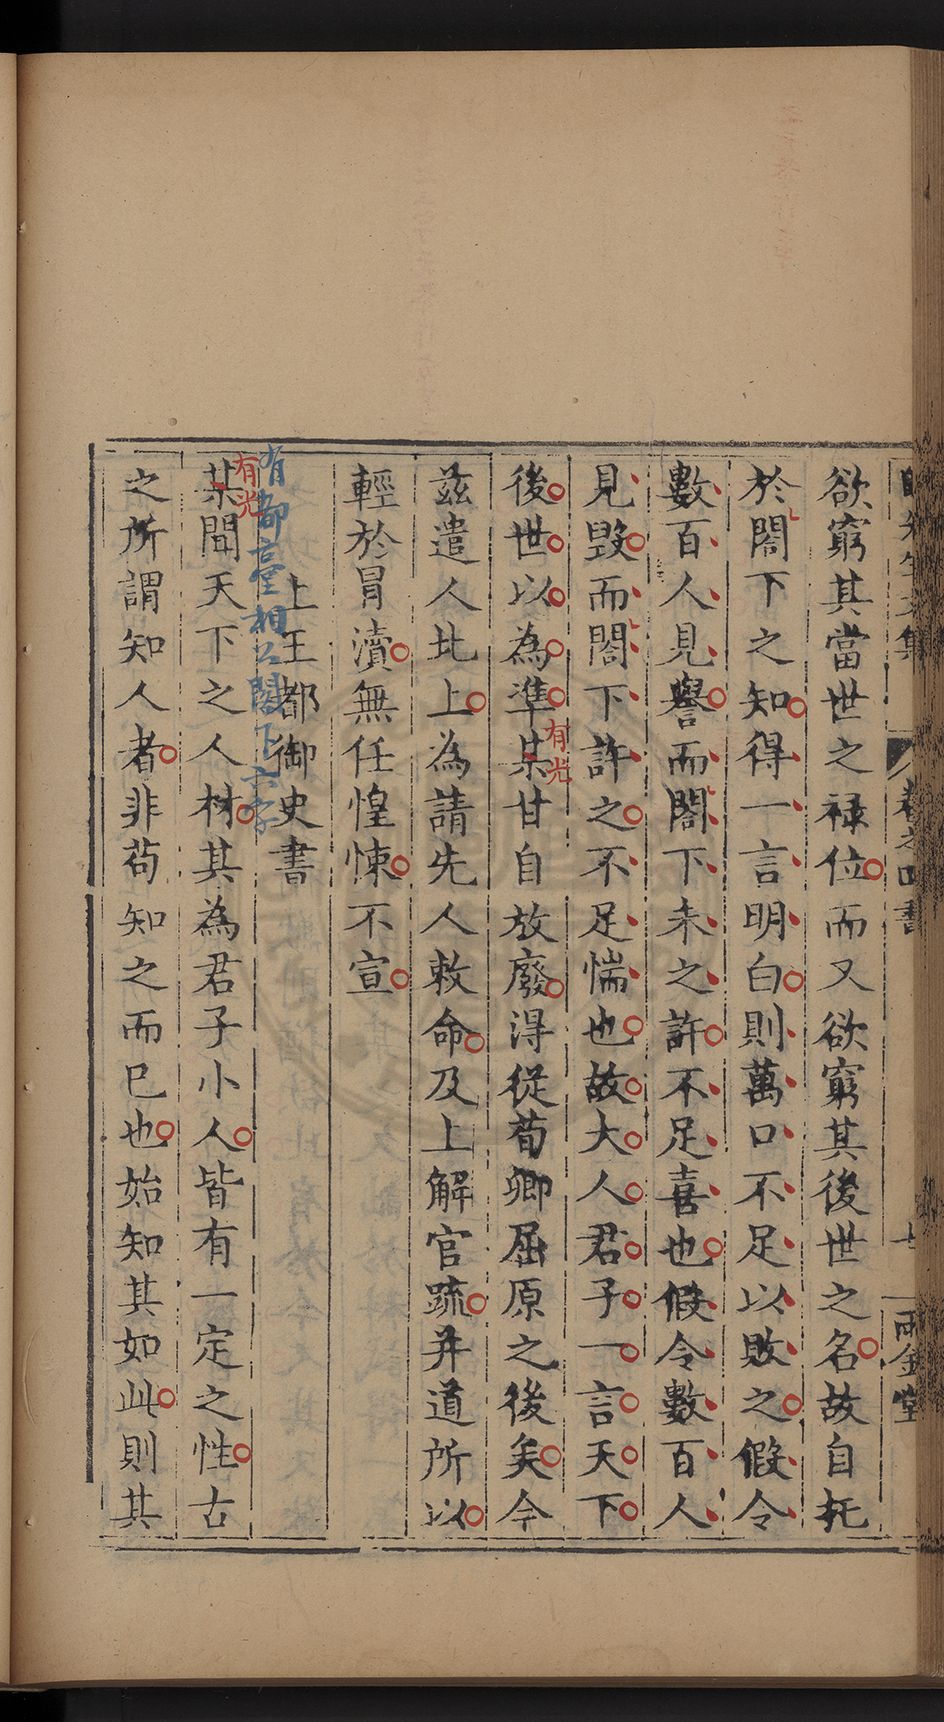 卷之四書
兩金堂
欲窮其當世之祿位而又欲窮其後世之名故自托
於閤下之知得一言明白則萬口不足以敗之假令
數百人見譽而閤下未之許不足喜也假令數百人
見毀而閤下許之不足惴也故大人君子一言天下
後世以為準某甘自放廢得從荀卿屈原之後矣今
有光
茲遣人北上為請先人敕命及上解官疏并道所以
輕於冒瀆無任惶悚不宣
上王都御史書
有都臺相公閣下六字
某聞天下之人材其為君子小人皆有一定之性古
有光
之所謂知人者非苟知之而已也始知其如此則其